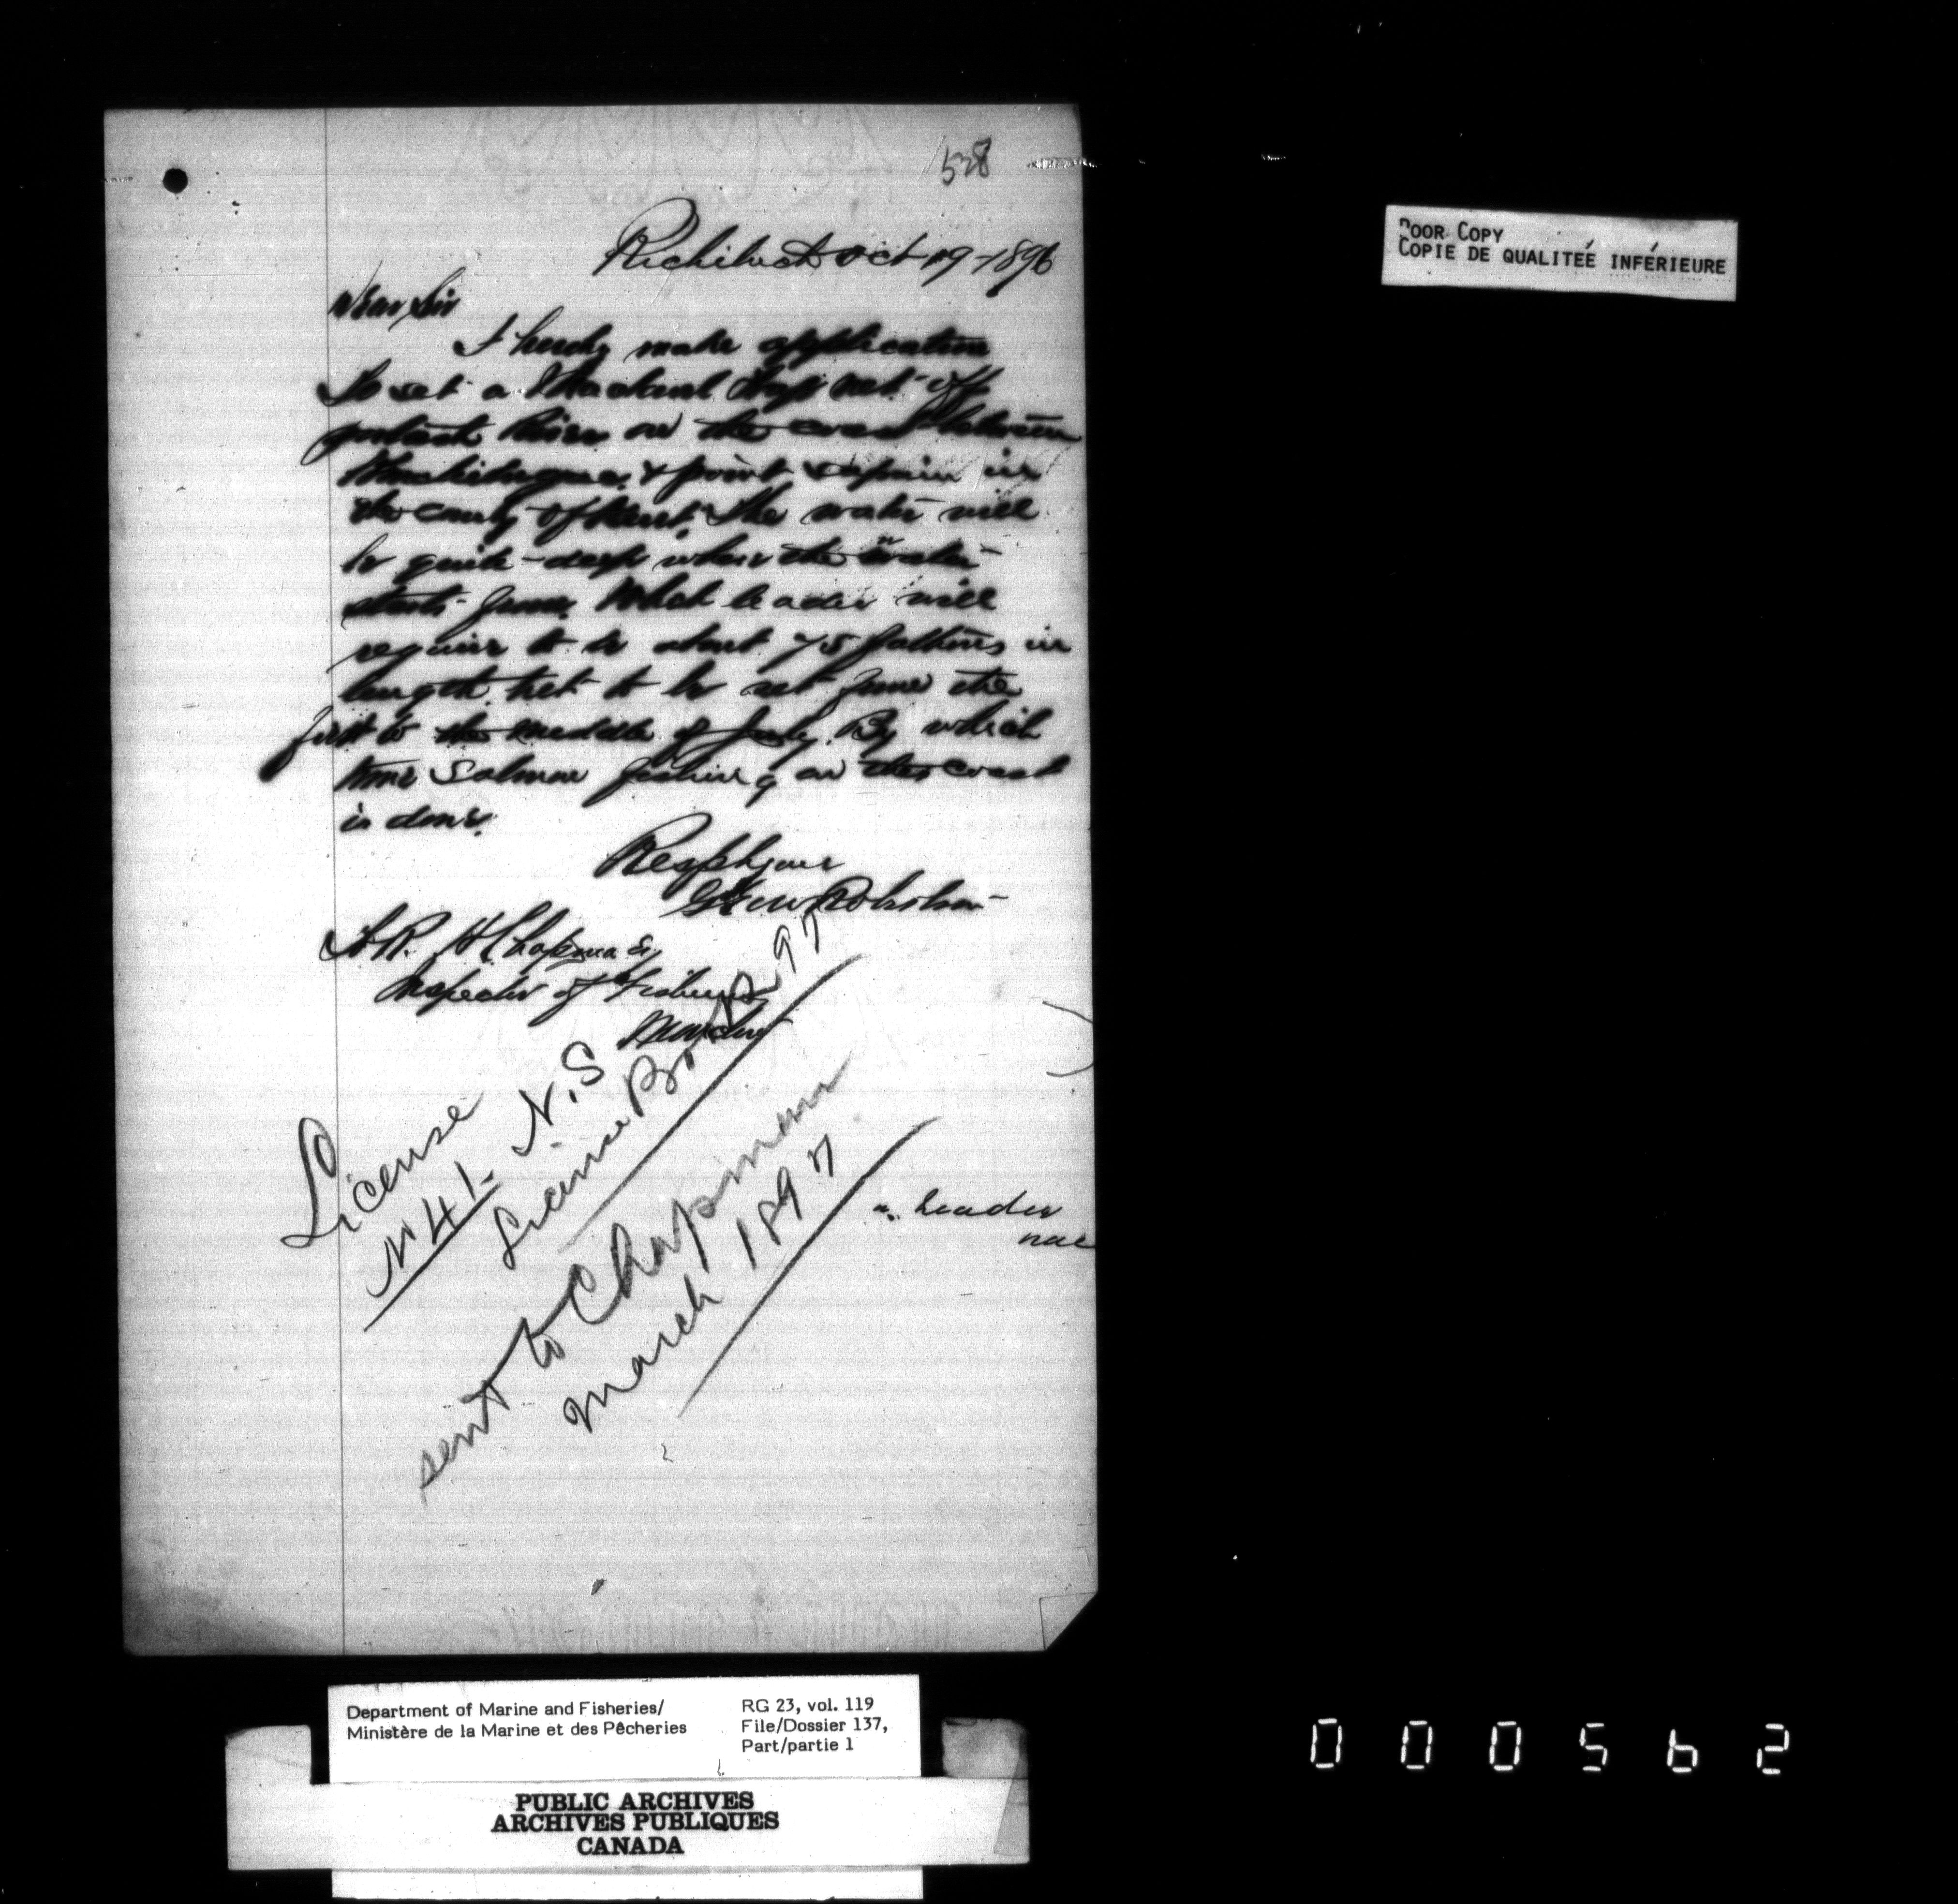 528
Richibucto Oct 19-1896
Dear Sir
I hereby make application
to set a Mackerel trap net off
on the coast between
& point Sapin in
the County of Kent. The water will
be quite deep where the
starts from. What leader will
require to be about 75 fathoms in
length net to be set June the
first to the middle of July. By which
time Salmon fishing on this coast
is done.
Respt yours
Robertson
R. A Chapman Esq
Inspector of Fisheries
Moncton
License
No 41- N.S
97
sent to Chapman
March 1897
leader
POOR COPY
COPIE DE QUALITEÉ INFÉRIEURE
Department of Marine and Fisheries/
Ministère de la Marine et des Pêcheries
RG 23, vol. 119
File/Dossier 137,
Part/partie 1
PUBLIC ARCHIVES
ARCHIVES PUBLIQUES
CANADA
000562